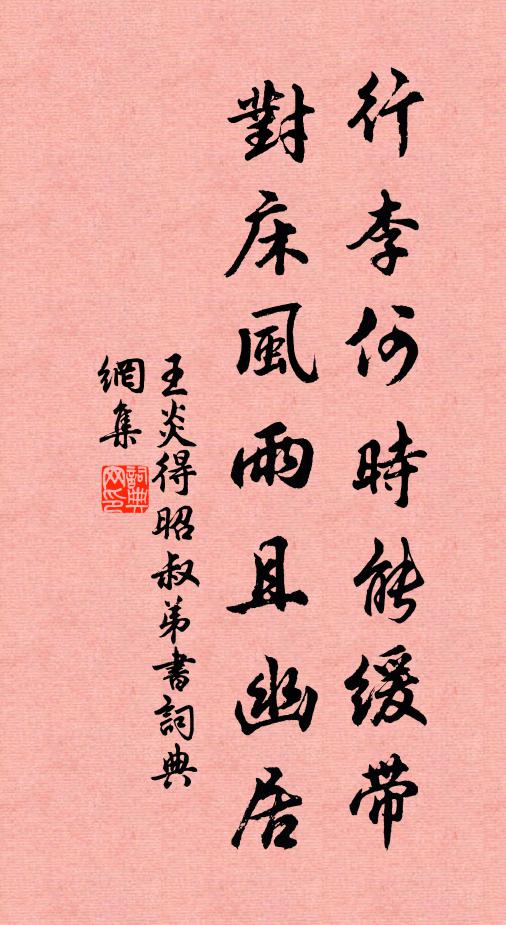 行李何時能緩帶
對床風雨且幽居
王炎得昭叔弟書詞典
網集
詞典
网印